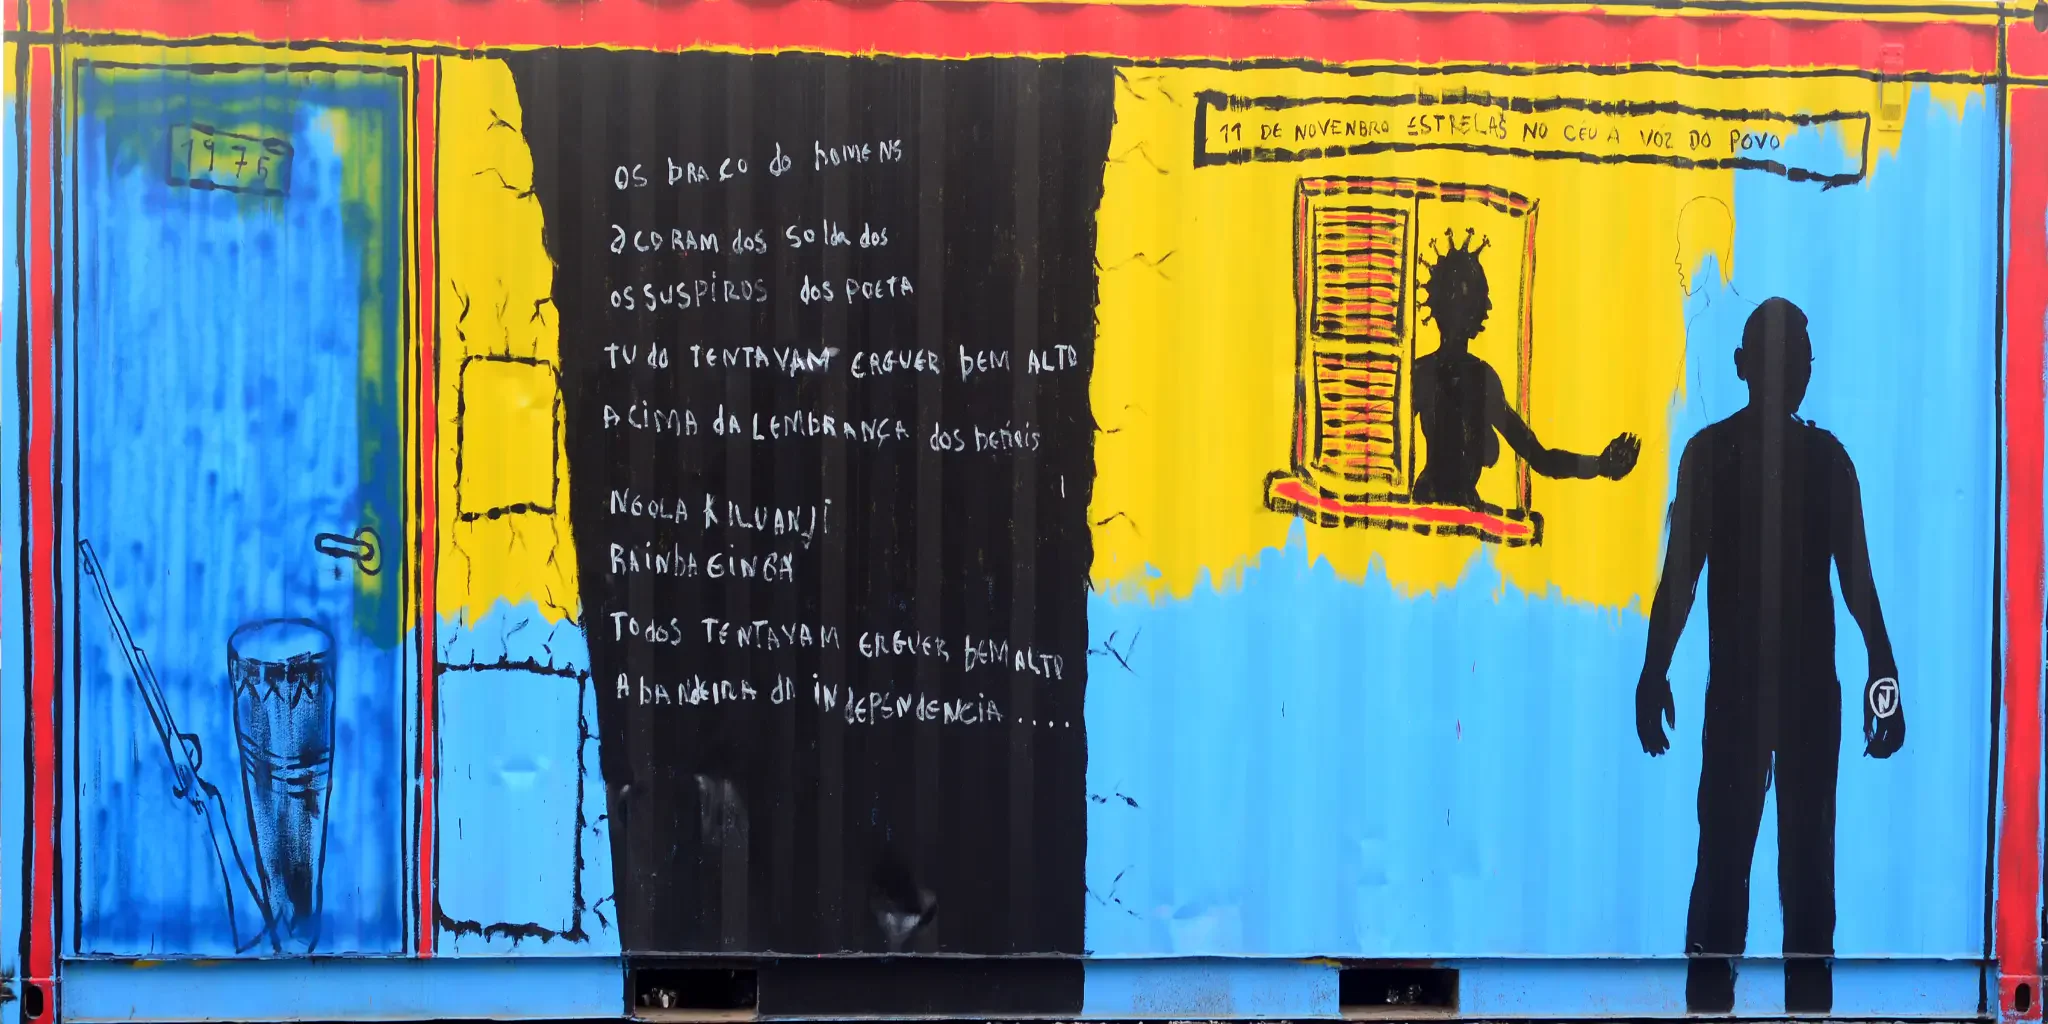 1975
OS bRAÇO do hOMENS
aCORAM dos Soldados
OS SUSPiROS dos POETA
TUdo TENTAVAM ERGUER bEM ALTO
ACiMA dA LEMbRANÇA dos heRóis
NGOLA KiLUANJi
RAiNhA GiNGA
TodoS TENTAVAM ERGUER bEM ALTO
A bANdEiRA dA iNdEPENdENCiA ....
11 DE NOVENBRO ESTRELAS NO CÉU A VOZ DO POVO